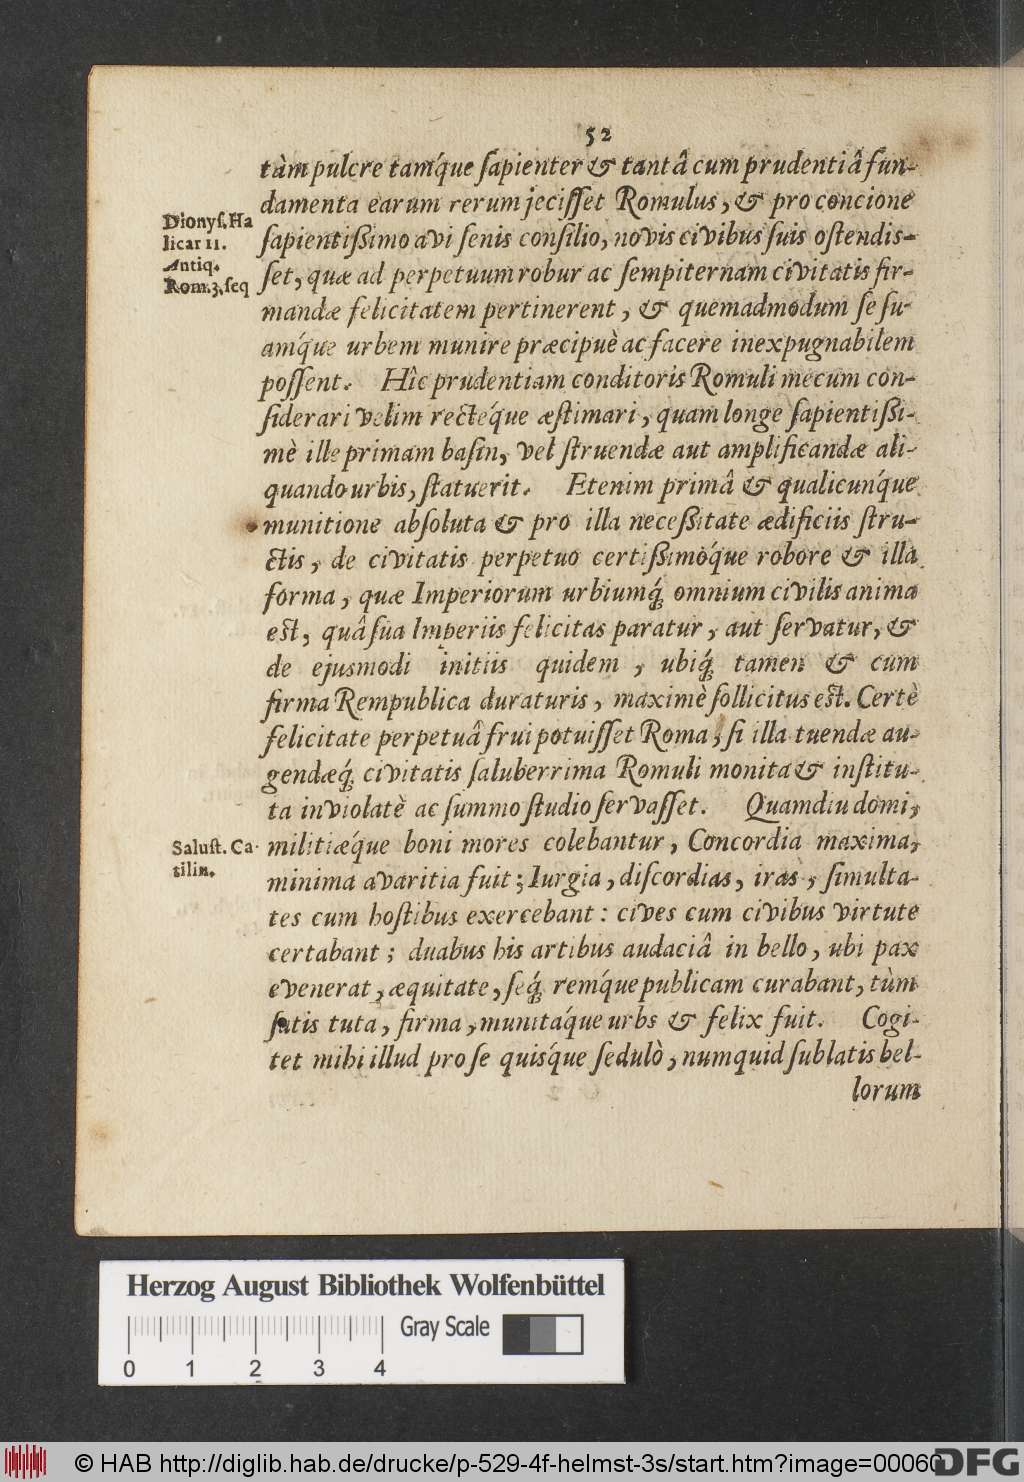 52
tàm pulcre tamq́ue ſapienter & tantâ cum prudentiâ fun-
damenta earum rerum jeciſſet Romulus, & pro concione
Dionyſ. Ha
licar 11.
Antiq.
Rom. 3. ſeq
ſapientißimo avi ſenis conſilio, novis civibus ſuis oſtendis-
ſet, quæ ad perpetuum robur ac ſempiternam civitatis fir-
mandæ felicitatem pertinerent, & quemadmodum ſe ſu-
amq́ue urbem munire præcipuè ac facere inexpugnabilem
poſſent. Hîc prudentiam conditoris Romuli mecum con-
ſiderari velim recteq́ue æſtimari, quam longe ſapientißi-
mè ille primam baſin, vel ſtruendæ aut amplificandæ ali-
quando urbis, ſtatuerit. Etenim primâ & qualicunq́ue
munitione abſoluta & pro illa neceßitate ædificiis ſtru-
ctis, de civitatis perpetuo certißimoq́ue robore & illa
forma, quæ Imperiorum urbiumq́; omnium civilis anima
eſt, quâ ſua Imperiis felicitas paratur, aut ſervatur, &
de ejusmodi initiis quidem, ubiq́; tamen & cum
firma Rempublica duraturis, maximè ſollicitus eſt. Certè
felicitate perpetuâ frui potuiſſet Roma, ſi illa tuendæ au-
gendæq́; civitatis ſaluberrima Romuli monita & inſtitu-
ta inviolatè ac ſummo ſtudio ſervaſſet. Quamdiu domi,
Saluſt. Ca-
tilin.
militiæq́ue boni mores colebantur, Concordia maxima,
minima avaritia fuit; Iurgia, diſcordias, iras, ſimulta-
tes cum hoſtibus exercebant: cives cum civibus virtute
certabant; duabus his artibus audaciâ in bello, ubi pax
evenerat, æquitate, ſeq́; remq́ue publicam curabant, tùm
ſatis tuta, firma, munitaq́ue urbs & felix fuit. Cogi-
tet mihi illud pro ſe quisq́ue ſedulò, numquid ſublatis bel-
lorum
Herzog August Bibliothek Wolfenbüttel
Gray Scale
0 1 2 3 4
© HAB http://diglib.hab.de/drucke/p-529-4f-helmst-3s/start.htm?image=00060
DFG